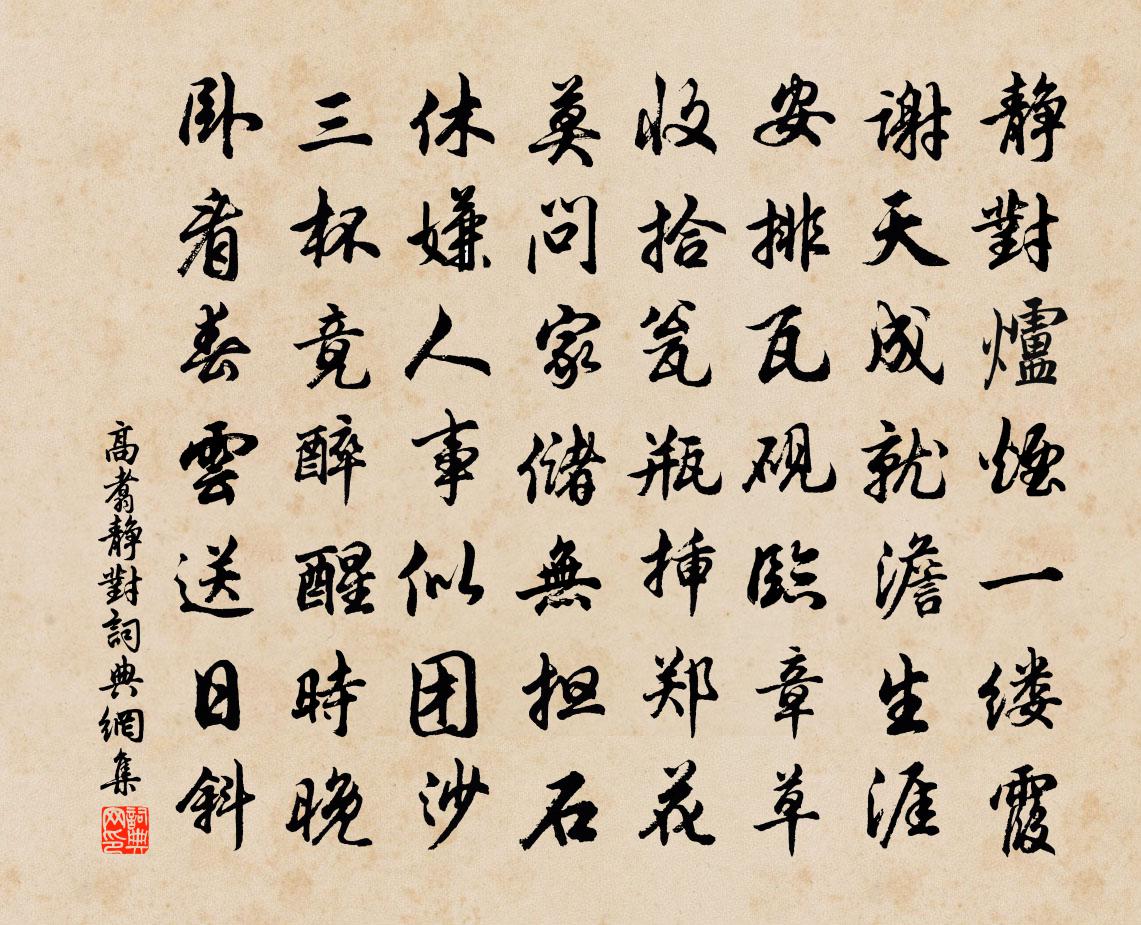 静對爐煙一缕霞
謝天成就澹生涯
安排瓦硯臨章草
收拾瓮瓶插郑花
莫問家儲無担石
休嫌人事似团沙
三杯竟醉醒時晚
卧看春雲送日斜
高翥静對詞典網集
詞典網印